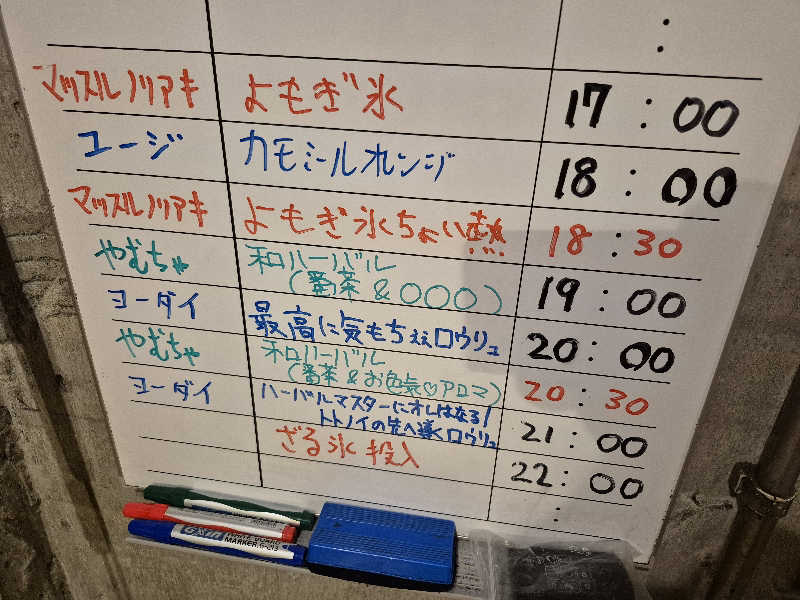 :
マッスルノリアキ よもぎ氷 17:00
ユージ カモミールオレンジ 18:00
マッスルノリアキ よもぎ氷ちょい熱 18:30
やむちゃ 和ハーバル 19:00
(番茶&〇〇〇)
ヨーダイ 最高に気もちぇぇロウリュ 20:00
やむちゃ 和ハーバル 20:30
(番茶&お色気♡アロマ)
ヨーダイ ハーバルマスターにオレはなる! 21:00
トトノイの先へ導くロウリュ
ざる氷投入 22:00
:
MARKER